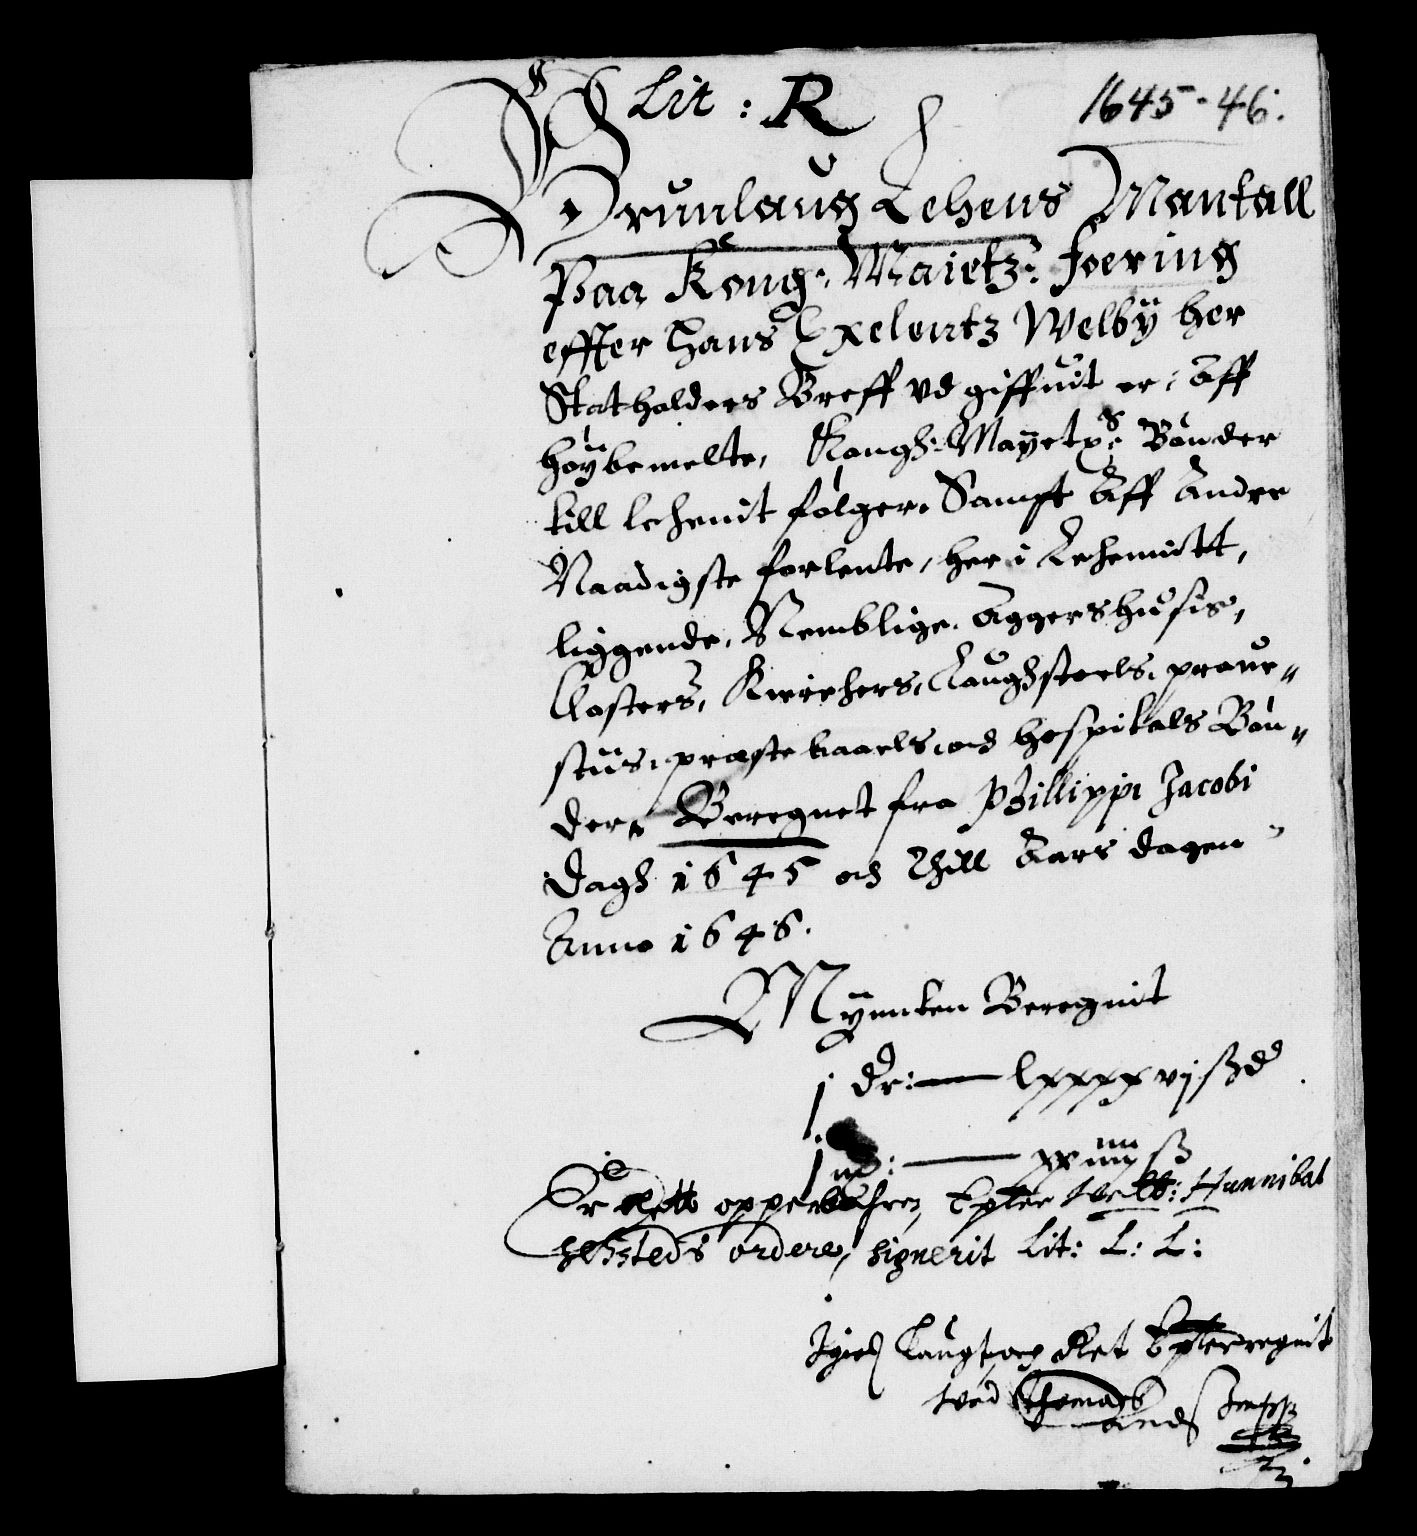 Lit: R
1645-46.
Brunlaug Lehens Mantall
Paa Kong: Maietz: foering
effter Hans Exelentz Welbÿ her
Statholders Breff vd giffuit er, Aff
høÿbemelte, Kongh: Maÿetz: Bønder
till lehenit følger, Sampt Aff Andre
Naadigste forlente, her i Lehennitt,
liggende, Nemblige, Aggershusis,
Closters, Kirchers, Laugstoels, proue-
stiis, præstebaarls, och Hospitals Bøn-
der, Beregnet fra Phillippi Jacobi
Dagh 1645 och Thill Aars dagen
Anno 1646.
Mÿnten Beregnit
j dr: — lxxxxvj ß d
j — xx ß
Er dette oppeberchen, Epter Welb: Hannibal
Sehesteds ordere, signerit Lit: L: L:
Igien Laugt och Ret Epterregnit
wed Thomas